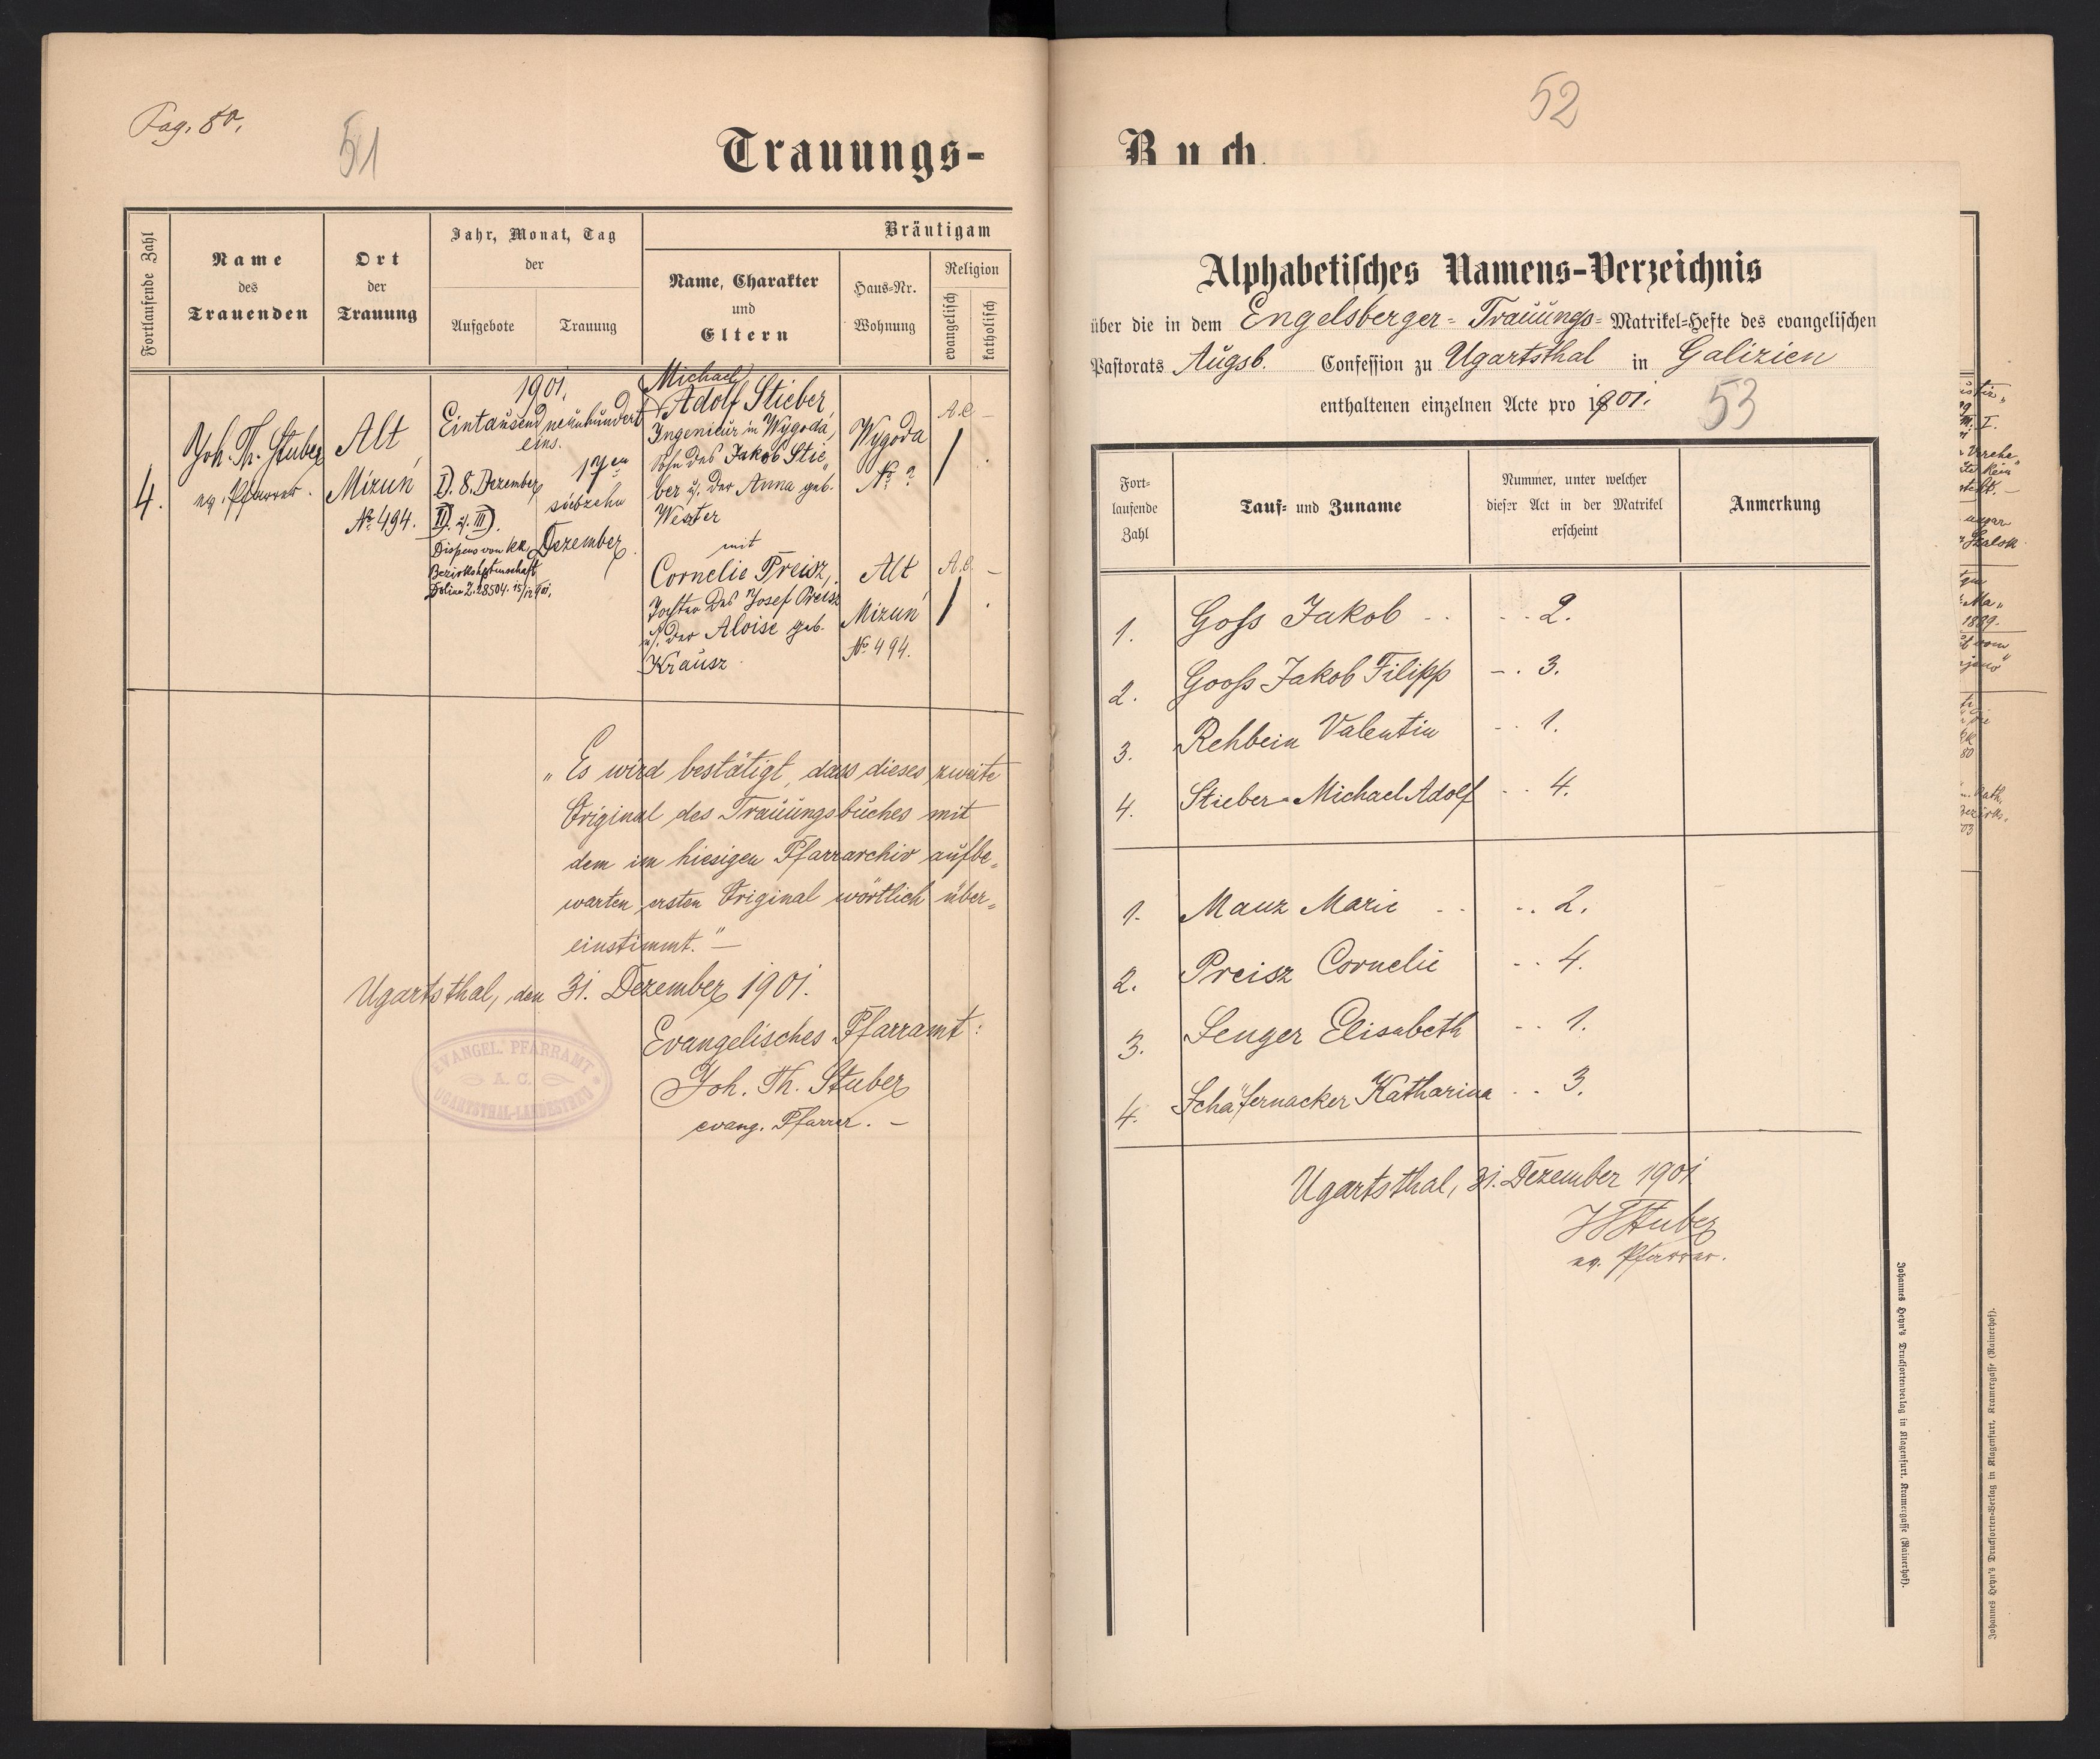 Pag. 50.
51
Trauungs-
Fortlaufende Zahl
Name
des
Trauenden
Ort
der
Trauung
Jahr, Monat, Tag
der
Aufgebote
Trauung
Bräutigam
Name, Charakter
und
Eltern
Haus-Nr.
Wohnung
Religion
evangelisch
katholisch
4.
Joh. Th. Stuber
ev. Pfarrer.
Alt
Mizuń
No 494.
1901.
Eintausend neunhundert
eins.
I). 8. Dezember
II). u. III).
Dispens von kk.
Bezirkshptmschaft
Dolina Z. 28504. 15/12 901.
17en
siebzehn
Dezember.
Michael
Adolf Stieber,
Ingenieur in Wygoda,
Sohn des Jakob Stie„
ber u. der Anna geb.
Wester
mit
Cornelie Preisz,
Tochter des Josef Preisz
u. der Aloise geb.
Krausz.
Wygoda
No ?
Alt
Mizuń
No 494.
A.C. –
A.C. –
„Es wird bestätigt, dass dieses zweite
Original des Trauungsbuches mit
dem im hiesigen Pfarrarchiv aufbe„
warten ersten Original wörtlich über„
einstimmt.“ –
Ugartsthal, den 31. Dezember 1901.
Evangelisches Pfarramt:
Joh. Th. Stuber
evang. Pfarrer. –
EVANGEL. PFARRAMT
A. C.
UGARTSTHAL-LANDESTREU
52
Buch.
Alphabetisches Namens-Verzeichnis
über die in dem Engelsberger- Trauungs- Matrikel-Hefte des evangelischen
Pastorats Augsb. Confession zu Ugartsthal in Galizien
enthaltenen einzelnen Acte pro 1901.
53
Fort-
laufende
Zahl
Tauf- und Zuname
Nummer, unter welcher
dieser Act in der Matrikel
erscheint
Anmerkung
1. Goss Jakob - - - - 2.
2. Gooss Jakob Filipp - . 3.
3. Rehbein Valentin - - 1.
4. Stieber Michael Adolf - - 4.
1. Mauz Marie - - - . 2.
2. Preisz Cornelie - - 4.
3. Senger Elisabeth - - 1.
4. Schäfernacker Katharina - - 3.
Ugartsthal, 31. Dezember 1901
JThStuber
ev. Pfarrer.
Johannes Heyn's Drucksortenverlag in Klagenfurt. Kramergasse (Rainerhof).
Johannes Heyn's Drucksorten-Verlag in Klagenfurt. Kramergasse (Rainerhof).